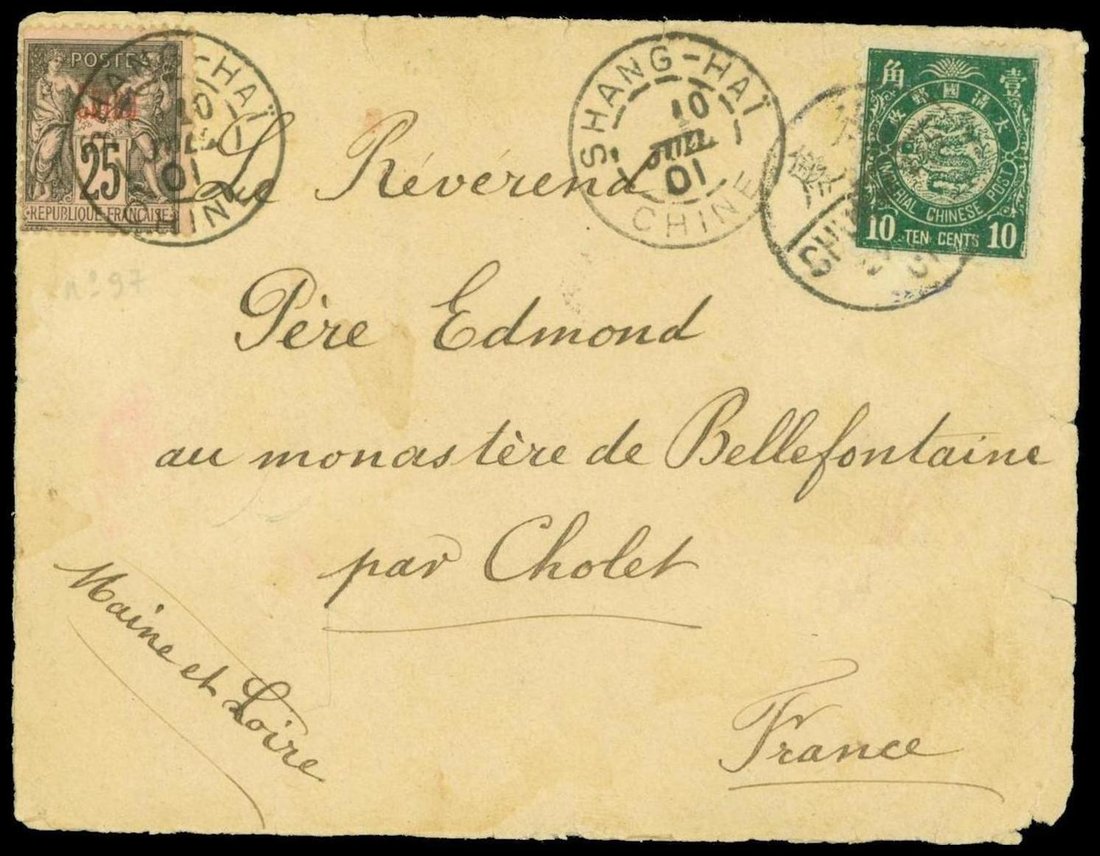 POSTES
25
RÉPUBLIQUE FRANÇAISE
HAÏ
10
01
CHINE
SHANG-HAÏ
10
JUIL
01
CHINE
壹 角
大清國郵政
IMPERIAL CHINESE POST
10 TEN CENTS 10
Le Révérend
n° 97
Père Edmond
au monastère de Bellefontaine
par Cholet
Maine et Loire
France